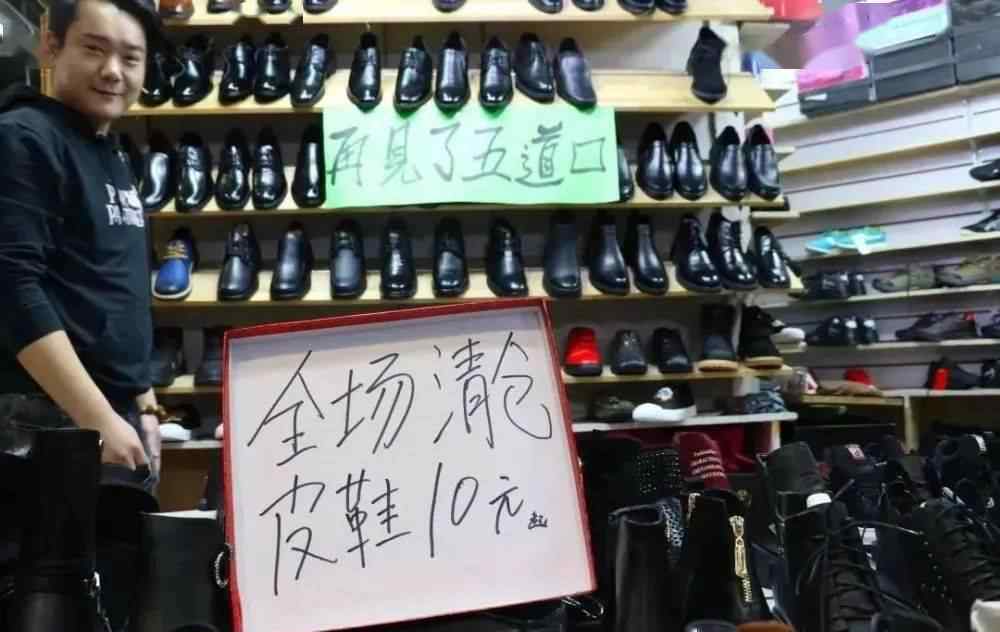 再见了五道口
全场清仓
皮鞋10元起